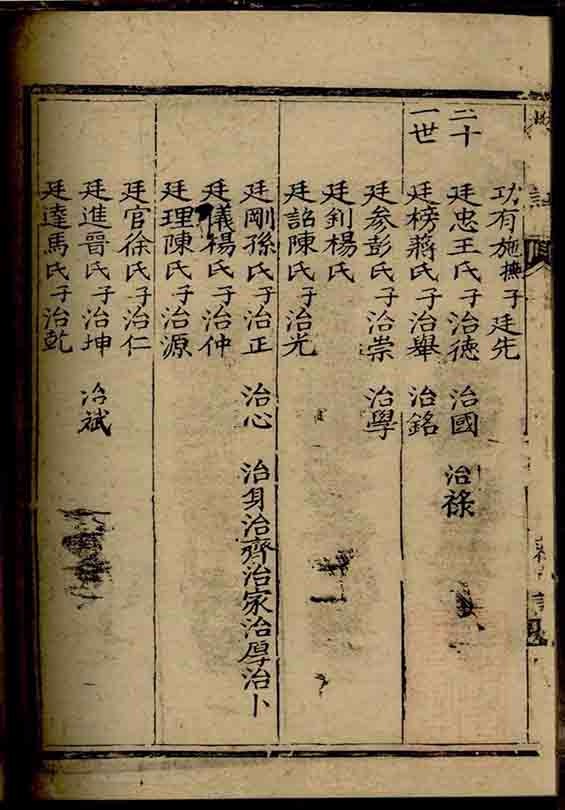 功有施撫子廷先
二十一世
廷忠王氏子治德 治國 治祿
廷榜蔣氏子治舉 治銘
廷参彭氏子治崇 治學
廷釗楊氏
廷詔陳氏子治光
廷剛孫氏子治正 治心 治身治齊治家治厚治卜
廷儀楊氏子治仲
廷理陳氏子治源
廷官徐氏子治仁
廷進晉氏子治坤 治斌
廷達馬氏子治乾